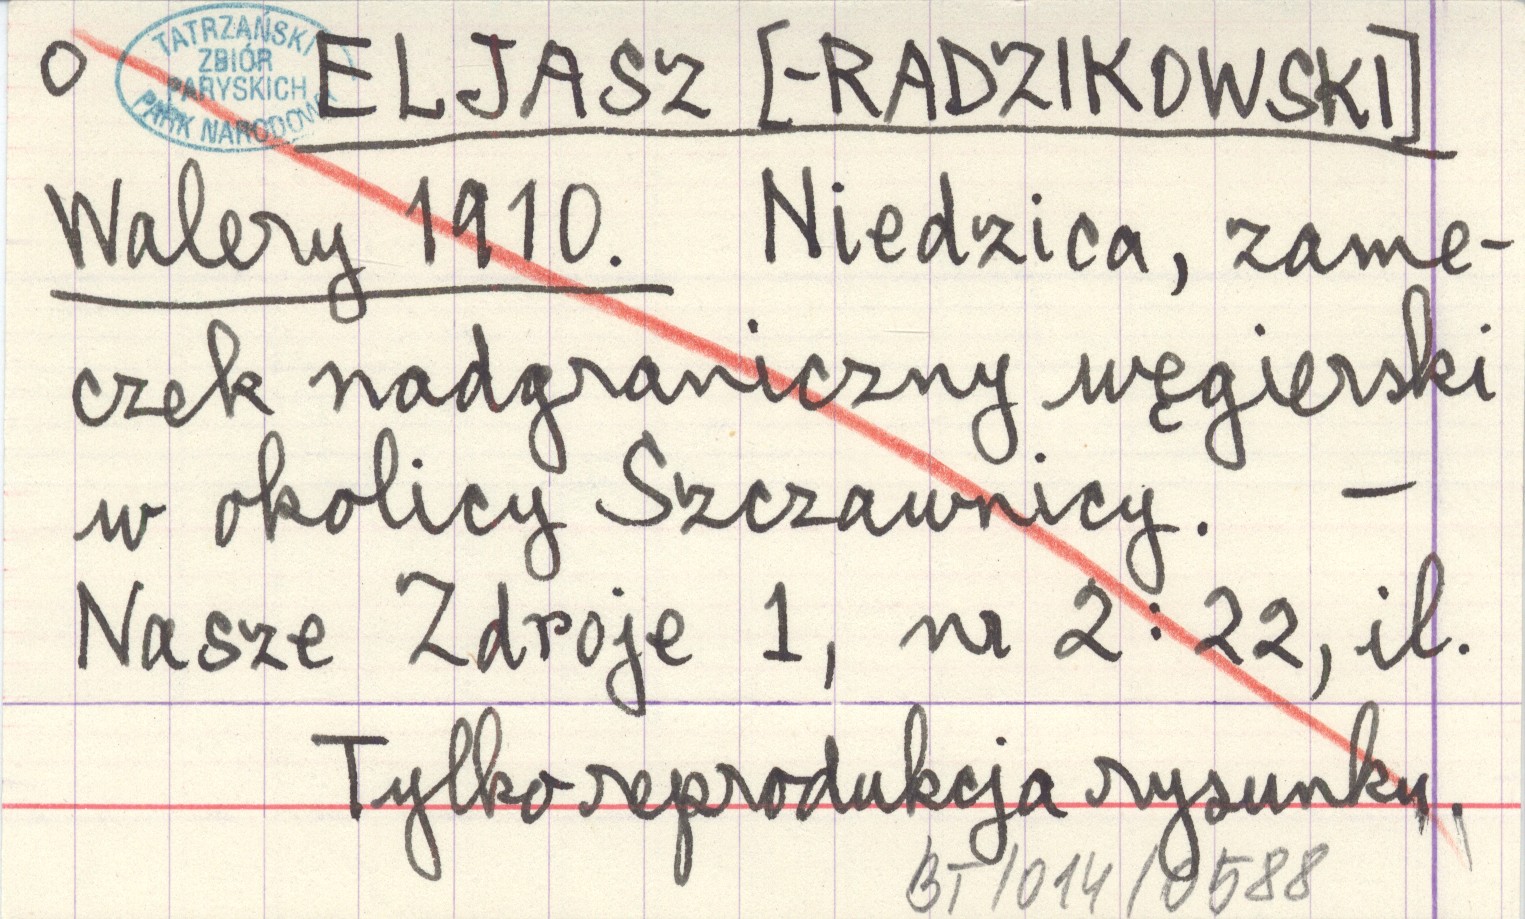 o ELJASZ [-RADZIKOWSKI]
TATRZAŃSKI
ZBIÓR
PARYSKICH
PARK NARODOWY
Walery 1910. Niedzica, zame-
czek nadgraniczny węgierski
w okolicy Szczawnicy. —
Nasze Zdroje 1, nr 2 : 22, il.
Tylko reprodukcja rysunku.
BT/014/0588